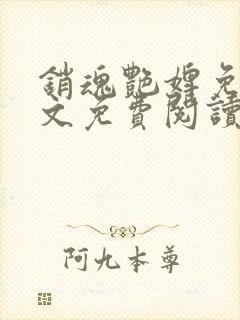 銷魂艷婢免
文免費閱讀
阿九本尊